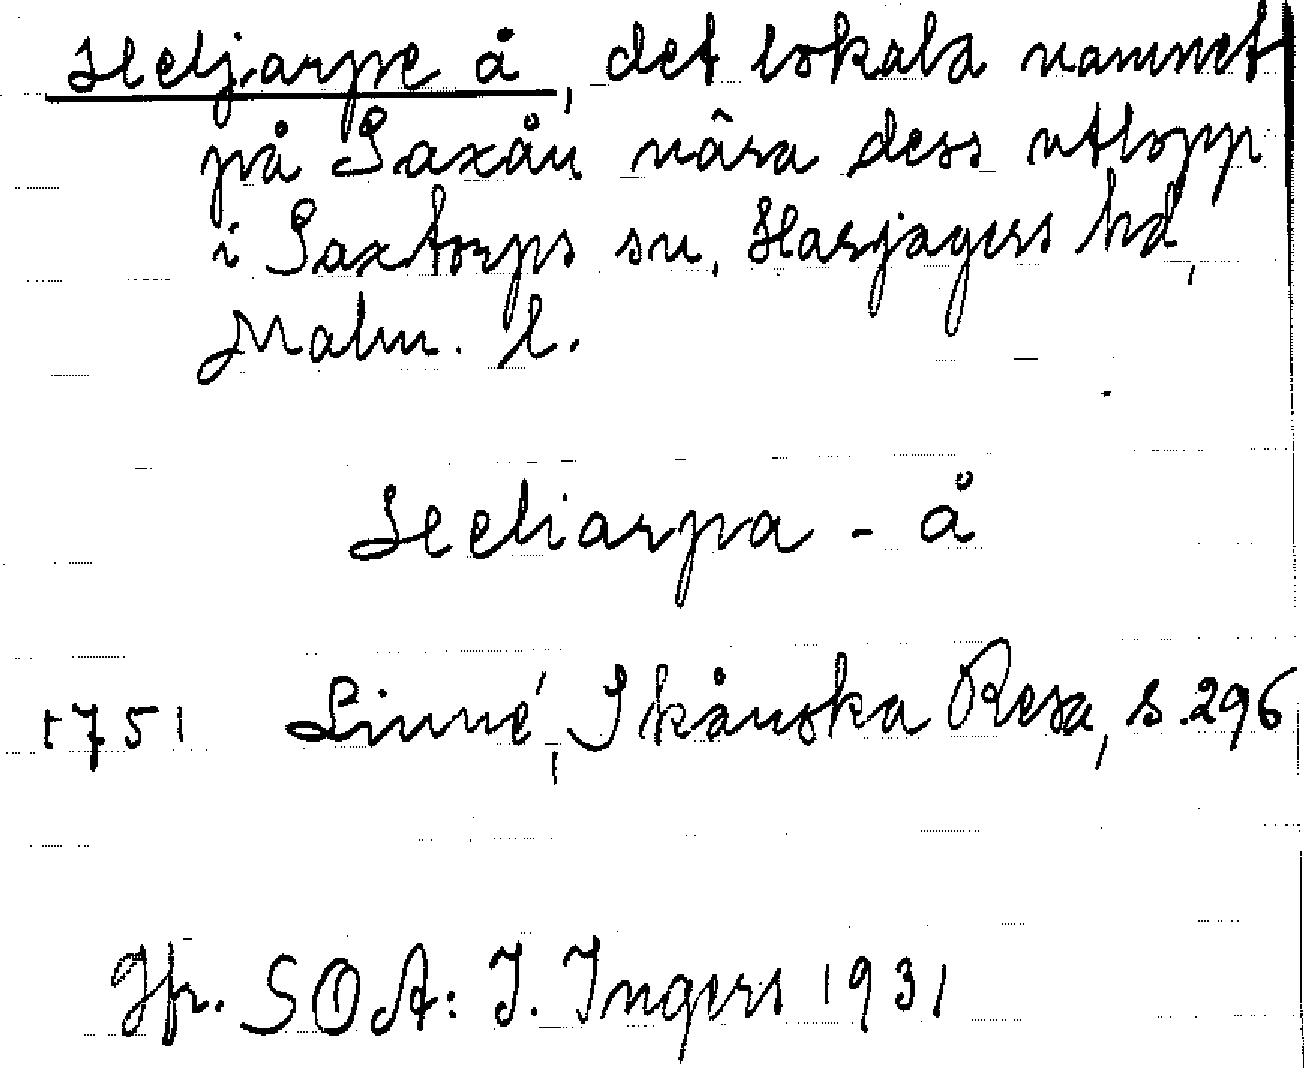 Heljarpe å, det lokala namnet
på Saxån nära dess utlopp
i Saxtorps sn, Harjagers hd,
Malm. l.
Heliarpa - å
1751 Linné, Skånska Resa, s. 296
Jfr. SOA: I. Ingers 1931